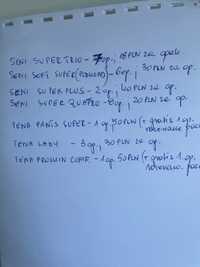 SENI SUPER TRIO - 7 op., 15 PLN za opak.
SENI SOFT SUPER (PODKŁAD) - 6 op., 30 PLN za op.
SENI SUPER PLUS - 2 op., 40 PLN za op.
SENI SUPER QUATRO - 8 op., 20 PLN za op.
TENA PANTS SUPER - 1 op., 50 PLN (+ gratis 1 op.
rozerwane
TENA LADY - 3 op., 30 PLN za op.
TENA PROSKIN COMF. - 1 op. 50 PLN (+ gratis 1 op.